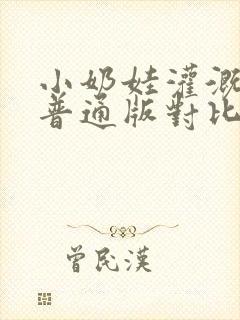 小奶娃灌溉
普通版對比
曾民漢